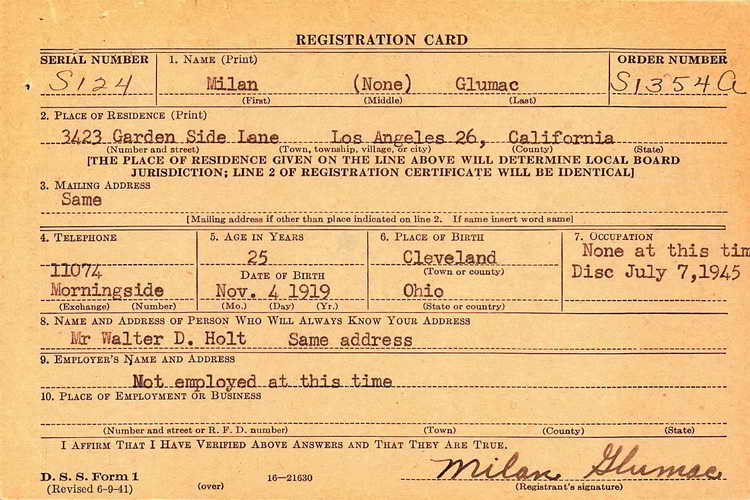 REGISTRATION CARD
SERIAL NUMBER 1. NAME (Print) ORDER NUMBER
S124 Milan (None) Glumac S1354A
(First) (Middle) (Last)
2. PLACE OF RESIDENCE (Print)
3423 Garden Side Lane Los Angeles 26, California
(Number and street) (Town, township, village, or city) (County) (State)
[THE PLACE OF RESIDENCE GIVEN ON THE LINE ABOVE WILL DETERMINE LOCAL BOARD
JURISDICTION; LINE 2 OF REGISTRATION CERTIFICATE WILL BE IDENTICAL]
3. MAILING ADDRESS
Same
[Mailing address if other than place indicated on line 2. If same insert word same]
4. TELEPHONE 5. AGE IN YEARS 6. PLACE OF BIRTH 7. OCCUPATION
25 Cleveland None at this tim
11074 DATE OF BIRTH (Town or county) Disc July 7,1945
Morningside Nov. 4 1919 Ohio
(Exchange) (Number) (Mo.) (Day) (Yr.) (State or country)
8. NAME AND ADDRESS OF PERSON WHO WILL ALWAYS KNOW YOUR ADDRESS
Mr Walter D. Holt Same address
9. EMPLOYER'S NAME AND ADDRESS
Not employed at this time
10. PLACE OF EMPLOYMENT OR BUSINESS
(Number and street or R. F. D. number) (Town) (County) (State)
I AFFIRM THAT I HAVE VERIFIED ABOVE ANSWERS AND THAT THEY ARE TRUE.
D. S. S. Form 1 Milan Glumac
(Revised 6-9-41) (over) 16—21630 (Registrant's signature)